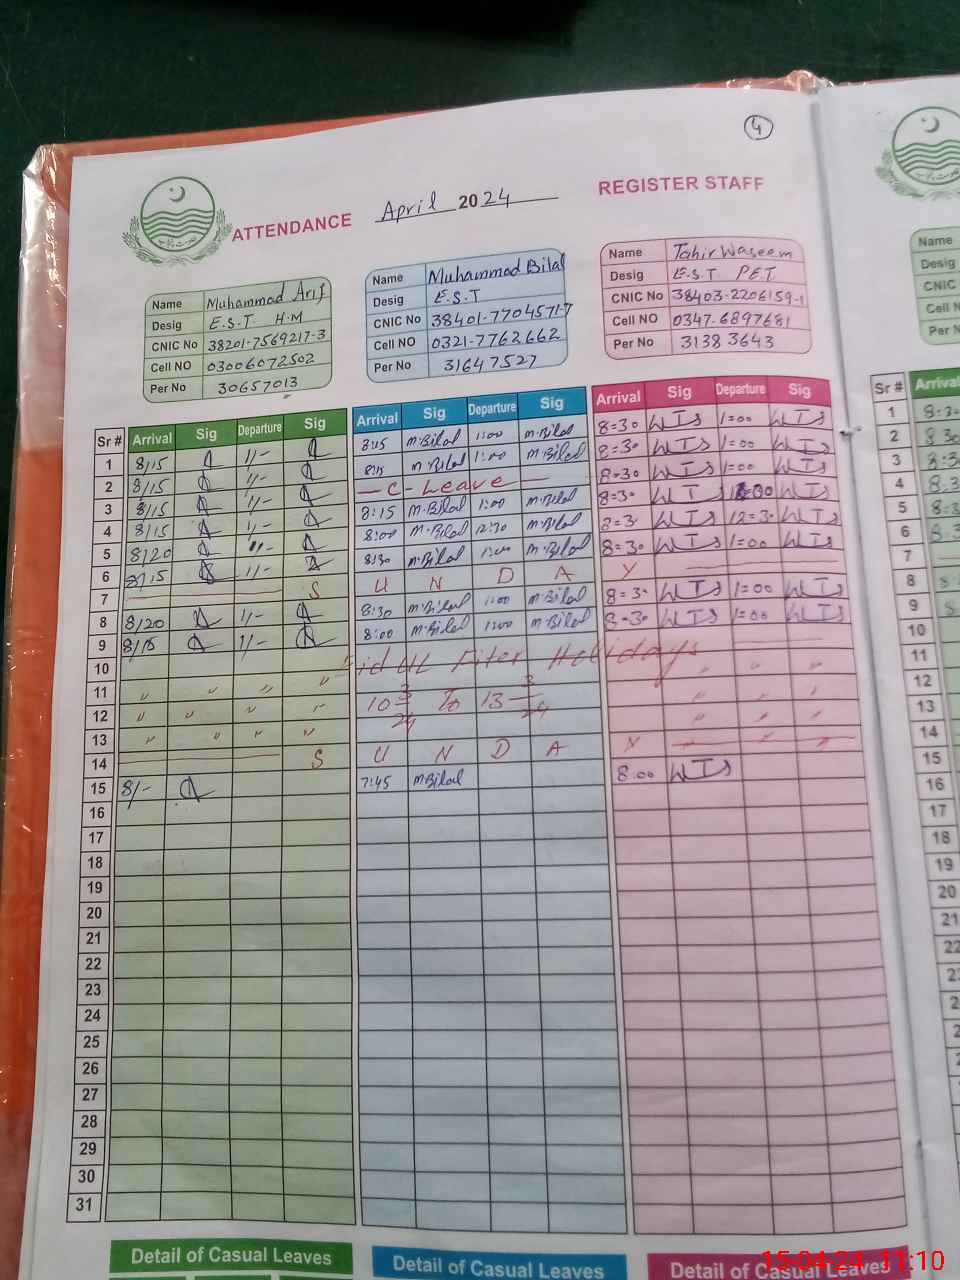 4
ATTENDANCE April 2024 REGISTER STAFF
Name Muhammad Arif
Desig E.S.T. H.M
CNIC No 38201-7569217-3
Cell NO 03006072502
Per No 30657013
Name Muhammad Bilal
Desig E.S.T
CNIC No 38401-7704571-7
Cell NO 0321-7762662
Per No 31647527
Name Tahir Waseem
Desig E.S.T P.E.T
CNIC No 38403-2206159-1
Cell NO 0347-6897681
Per No 31383643
Name
Desig
CNIC
Cell
Per N
Sr # Arrival Sig Departure Sig Arrival Sig Departure Sig Arrival Sig Departure Sig Sr # Arrival
1 8/15 1/- 8:15 M.Bilal 1:00 M.Bilal 8=30 1=00 1
2 8/15 1/- 8:15 M.Bilal 1:00 M.Bilal 8=30 1=00 2
3 8/15 1/- C-Leave 8=30 1=00 3
4 8/15 1/- 8:15 M.Bilal 1:00 M.Bilal 8=30 4
5 8/20 8:00 M.Bilal 12:30 M.Bilal 8=30 12=30 5
6 8/15 1/- 8:30 M.Bilal 1:00 M.Bilal 8=30 1=00 6
7 S U N D A Y 7
8 8/20 1/- 8:30 M.Bilal 1:00 M.Bilal 8=30 1=00 8
9 8/15 1/- 8:00 M.Bilal 1:00 M.Bilal 8=30 1=00 9
10 Eid UL Fiter Holidays 10
11 " " " " 10 3/24 To 13 3/24 " " " 11
12 " " " " " " " 12
13 " " " " " " " 13
14 S U N D A Y 14
15 8/- 7:45 M.Bilal 8:00 15
16 16
17 17
18 18
19 19
20 20
21 21
22 22
23
24
25
26
27
28
29
30
31
Detail of Casual Leaves Detail of Casual Leaves Detail of Casual Leaves
15.04.24 11:10